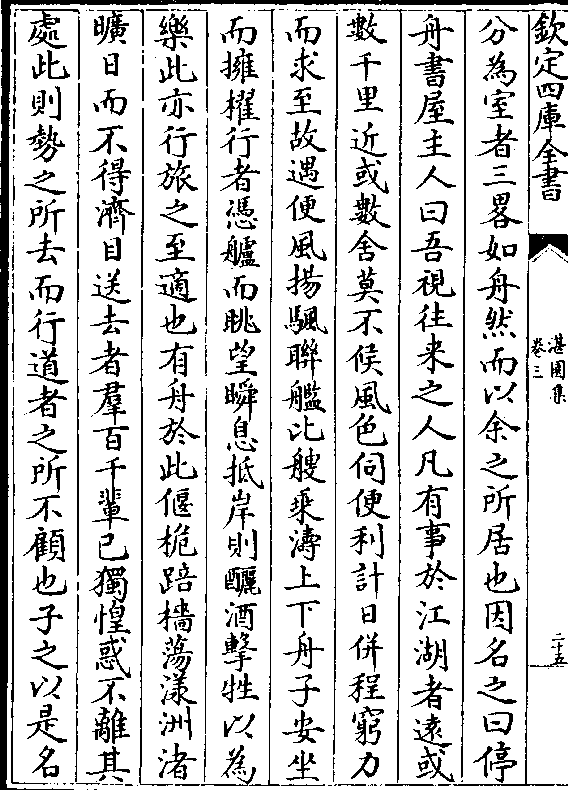 欽定四庫全書
湛園集
卷三
二十五
分為室者三畧如舟然而以余之所居也因名之曰停
舟書屋主人曰吾視往来之人凡有事於江湖者逺或
數千里近或數舍莫不候風色伺便利計日併程窮力
而求至故遇便風揚颿聯艦比艘乗濤上下舟子安坐
而擁櫂行者憑艫而眺望瞬息抵岸則釃酒擊牲以為
樂此亦行旅之至適也有舟於此偃桅踣檣蕩漾洲渚
曠日而不得濟目送去者羣百千輩已獨惶惑不離其
處此則勢之所去而行道者之所不顧也子之以是名